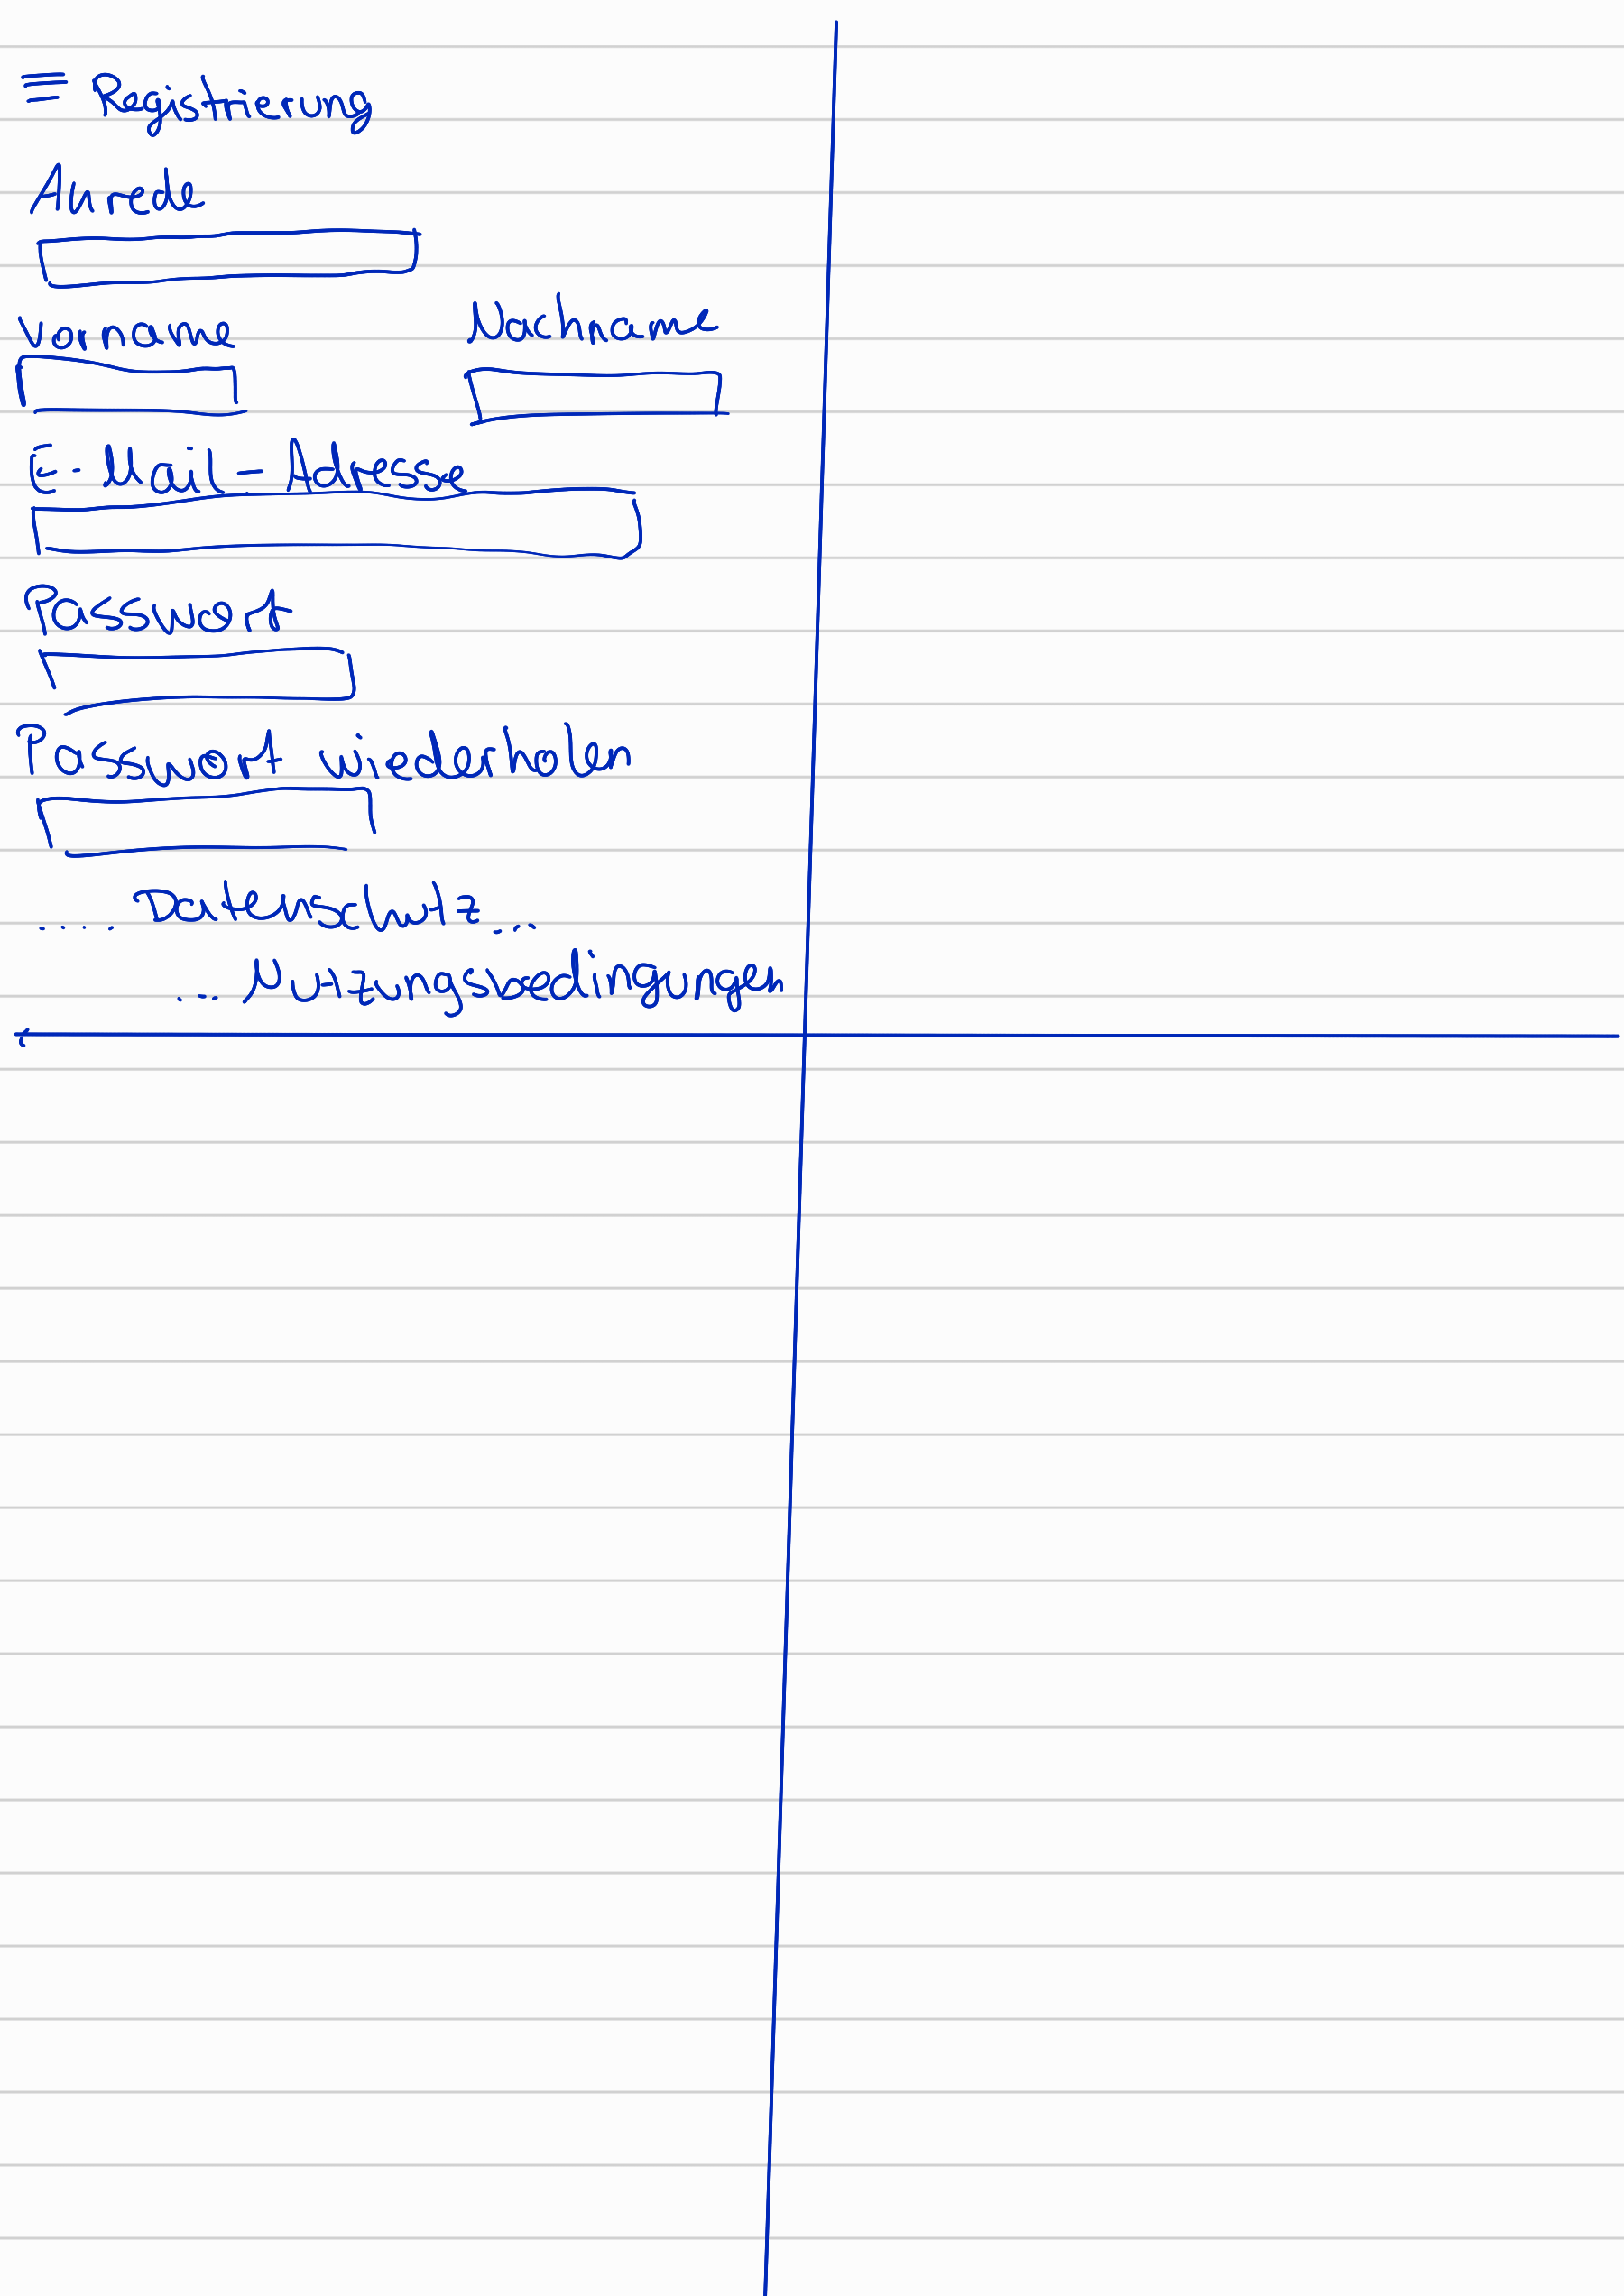 Registrierung
Anrede
Vorname Nachname
E-Mail-Adresse
Passwort
Passwort wiederholen
.... Datenschutz...
... Nutzungsbedingungen